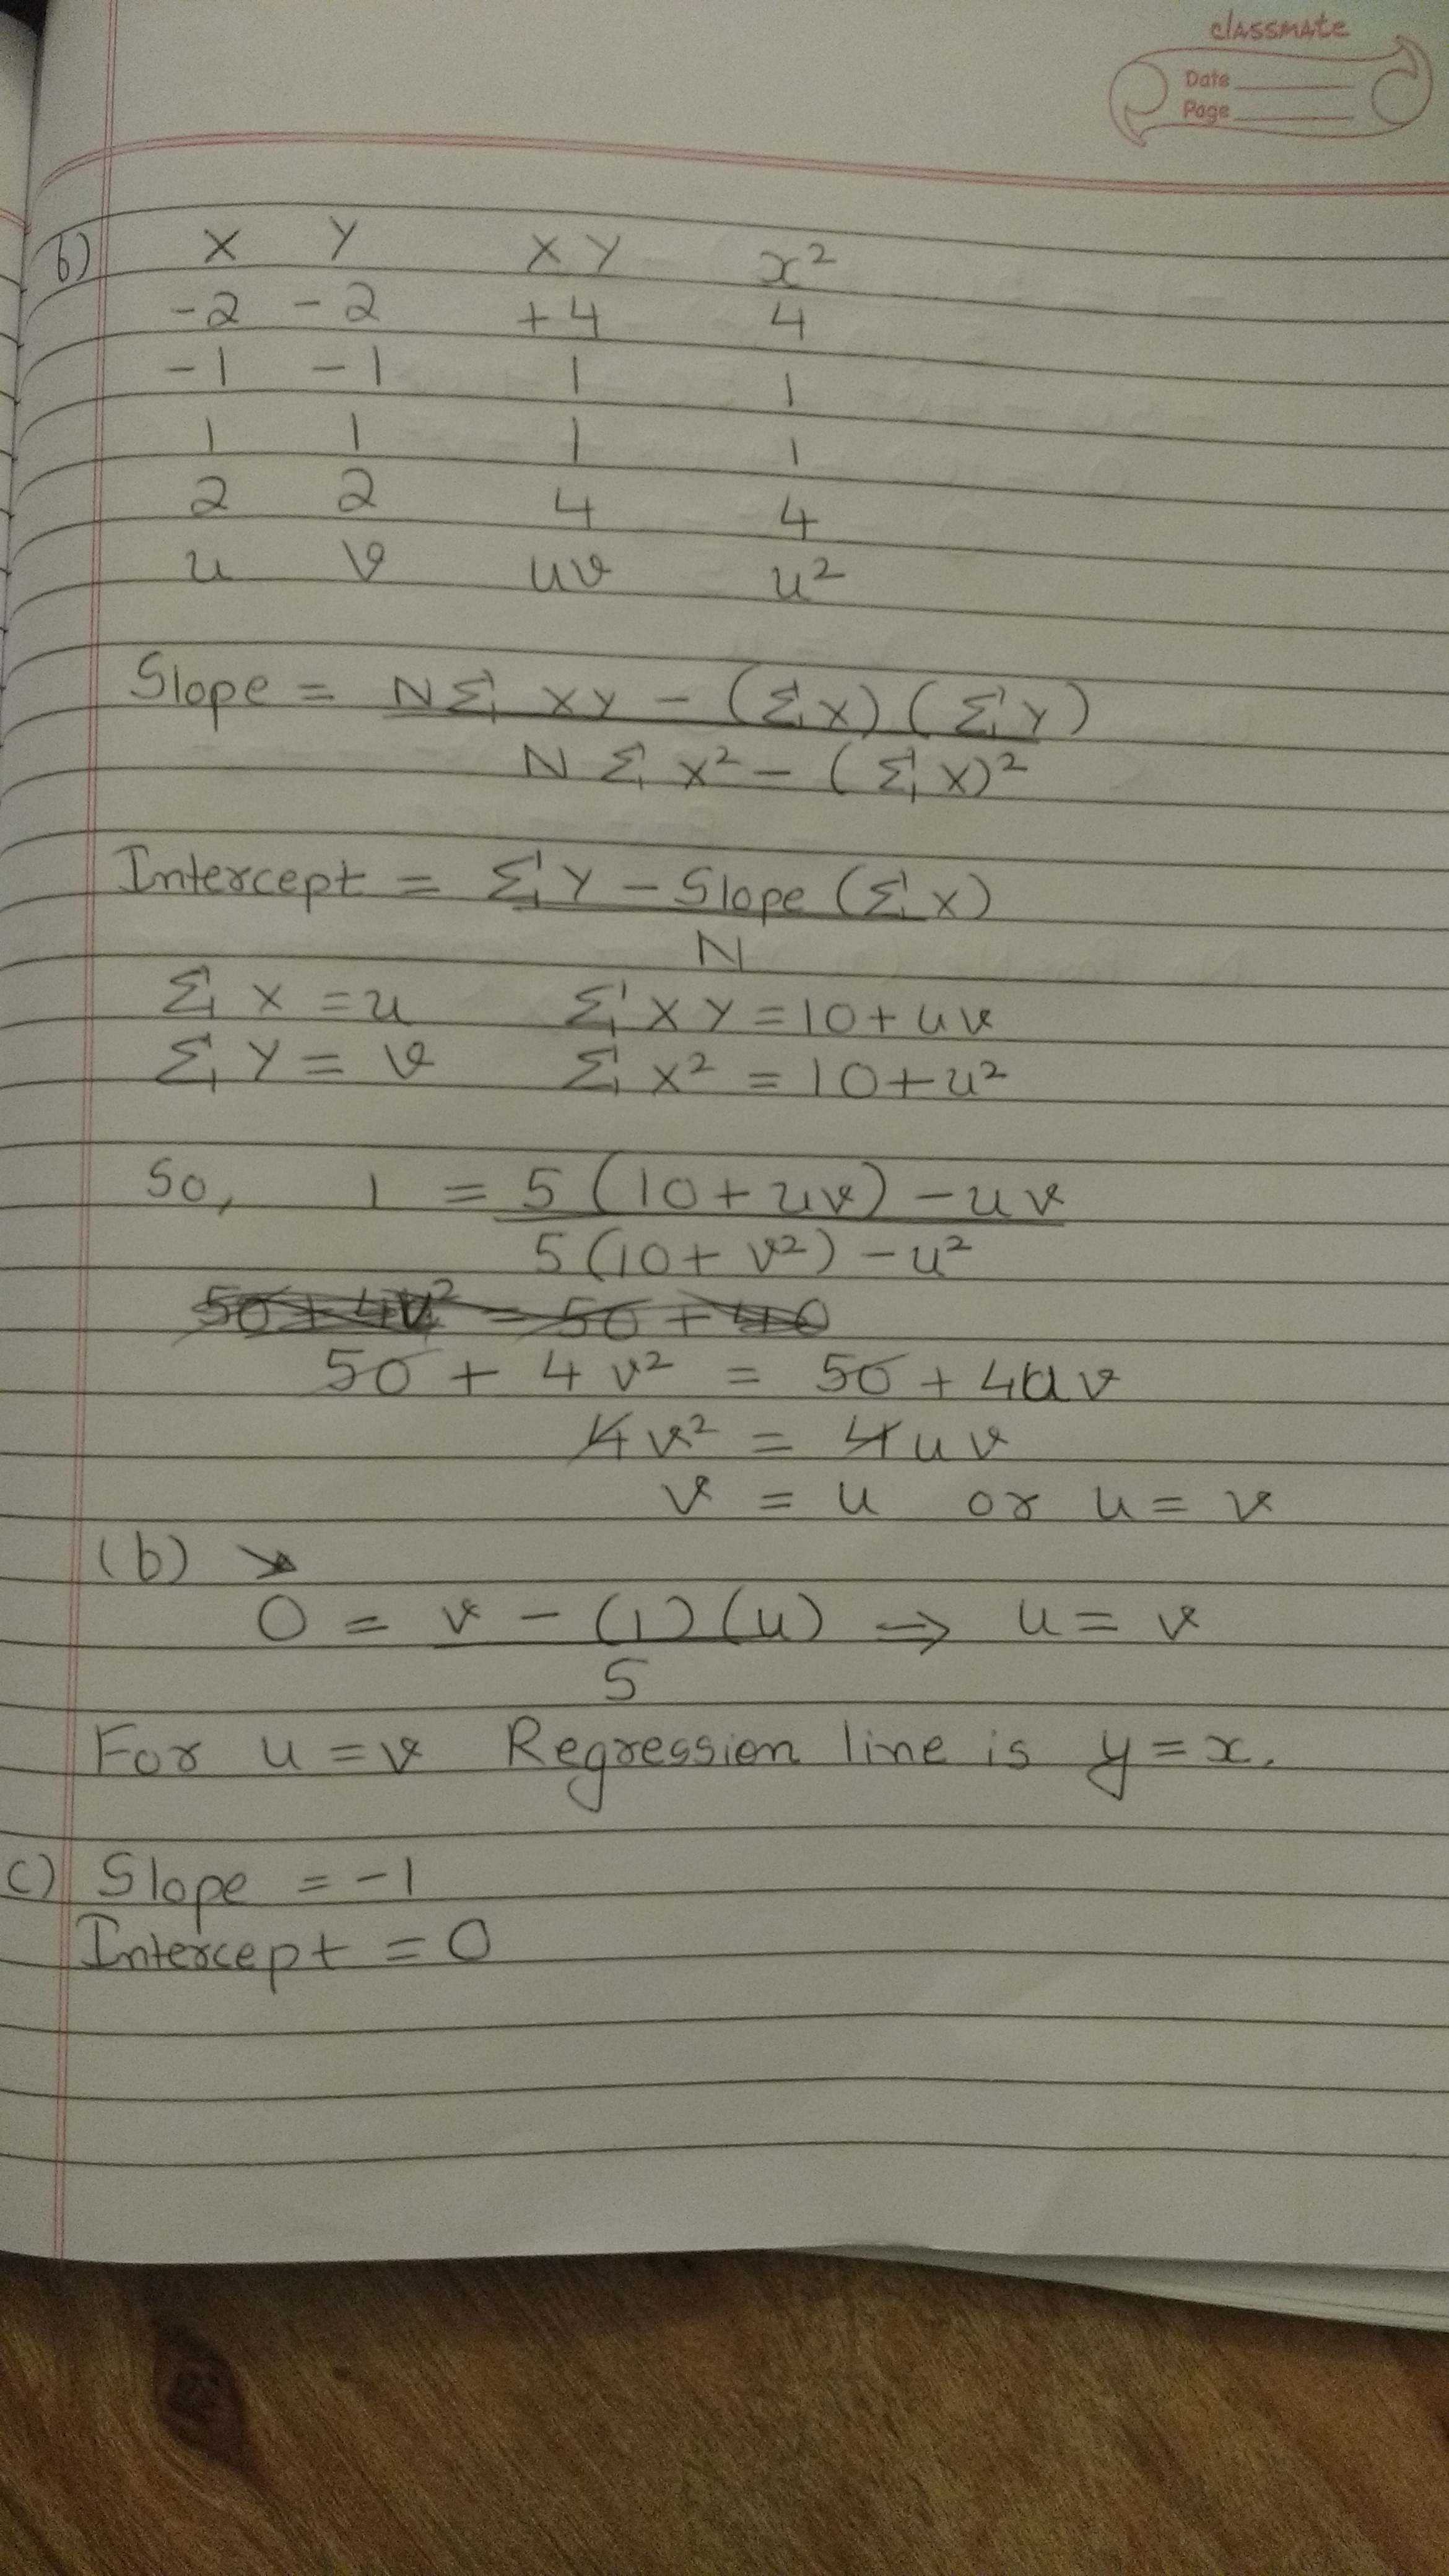 classmate
Date
Page
b) X Y XY x²
-2 -2 +4 4
-1 -1 1 1
1 1 1 1
2 2 4 4
u v uv u²
Slope = NΣ XY - (ΣX) (ΣY)
N Σ X² - (ΣX)²
Intercept = ΣY - Slope (ΣX)
N
Σ X = u Σ XY = 10 + uv
Σ Y = v Σ X² = 10 + u²
So, 1 = 5 (10 + uv) - uv
5 (10 + v²) - u²
50 + 4v² = 50 + 4uv
4v² = 4uv
v = u or u = v
(b)
0 = v - (1) (u) ⇒ u = v
5
For u = v Regression line is y = x.
c) Slope = -1
Intercept = 0